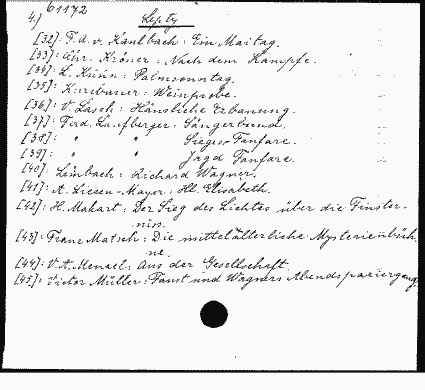 61172
4.) Septy
[32]: F. A. v. Kaulbach: Ein Maitag.
[33]: Chr. Kröner: Nach dem Kampfe.
[34]: L. Kunn: Palmsonntag.
[35]: Kurzbauer: Weinprobe.
[36]: V. Lasch: Häusliche Erbauung.
[37]: Ferd. Laufberger: Sängerbund.
[38]: " " Sieges-Fanfare.
[39]: " " Jagd Fanfare.
[40]: Leimbach: Richard Wagner.
[41]: A. Liesen-Mayer: Hl. Elisabeth.
[42]: H. Makart: Der Sieg des Lichtes über die Finster-
niss.
[43]: Franz Matsch: Die mittelälterliche Mysterienbüh
ne.
[44]: V. A. Menzel: Aus der Gesellschaft.
[45]: Victor Müller: Faust und Wagners Abendspaziergang.